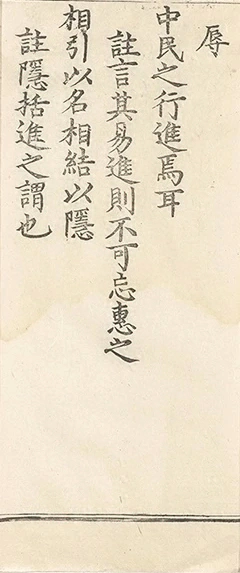 辱
中民之行進焉耳
註言其易進則不可忘惠之
相引以名相結以隱
註隱括進之謂也